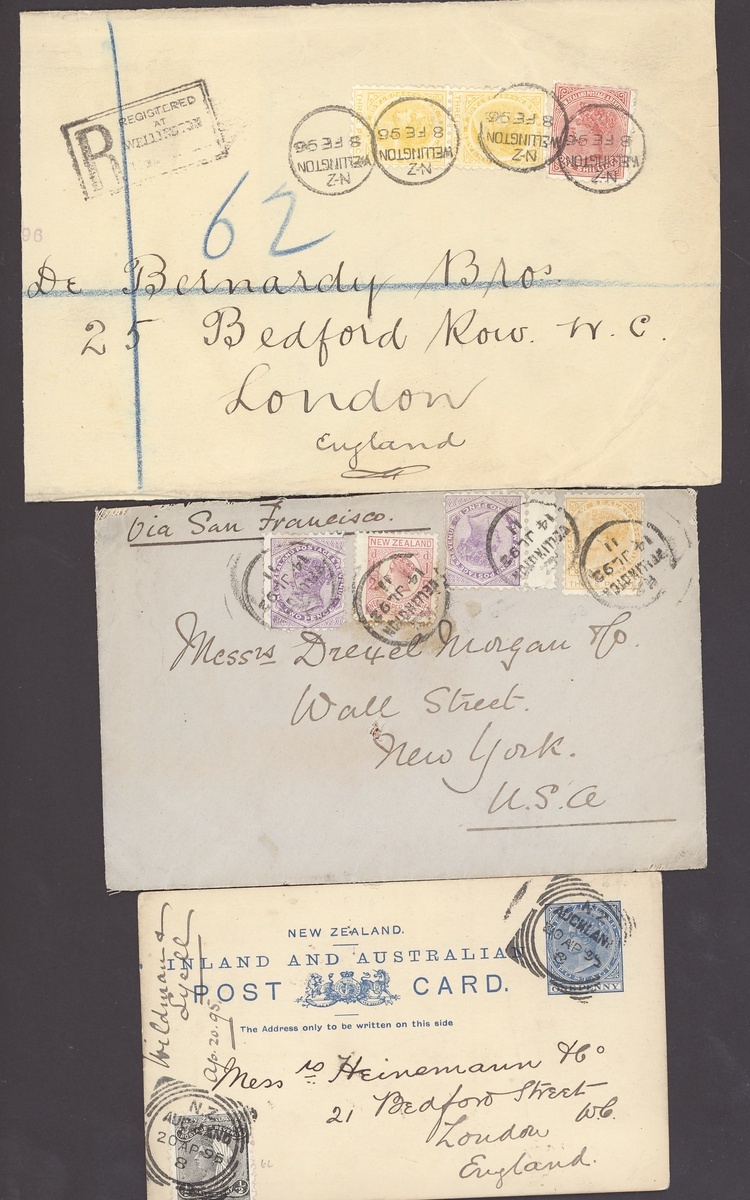 R REGISTERED
AT
WELLINGTON
N-Z
WELLINGTON
8 FE 96
N-Z
WELLINGTON
8 FE 96
N-Z
WELLINGTON
8 FE 96
N-Z
WELLINGTON
8 FE 96
96
62
De Bernardy Bros.
25 Bedford Row. W. C.
London
England
Via San Francisco.
NEW ZEALAND
11
14 JL 92
WELLINGTON
11
14 JL 92
WELLINGTON
11
14 JL 92
Messrs Drexel Morgan & Co.
Wall Street.
New York.
U.S.A
NEW ZEALAND.
INLAND AND AUSTRALIAN
POST CARD.
The Address only to be written on this side
N.Z
AUCKLAND
20 AP 95
8
ONE PENNY
Wildman &
Lyell
Ap. 20. 95
Messrs Heinemann & Co
21 Bedford Street
W.C.
London
England.
N.Z
AUCKLAND
20 AP 95
8